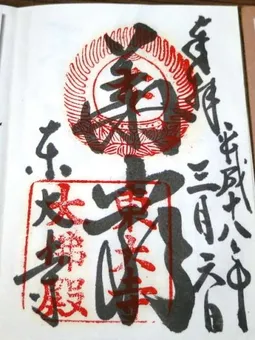 奉拝
平成十八年
三月六日
華厳
東大寺
東大寺
大佛殿